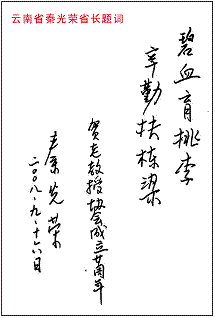 云南省秦光荣省长题词
碧血育桃李
辛勤扶栋梁
贺老教授协会成立廿周年
秦光荣
二〇〇八·九·十六日